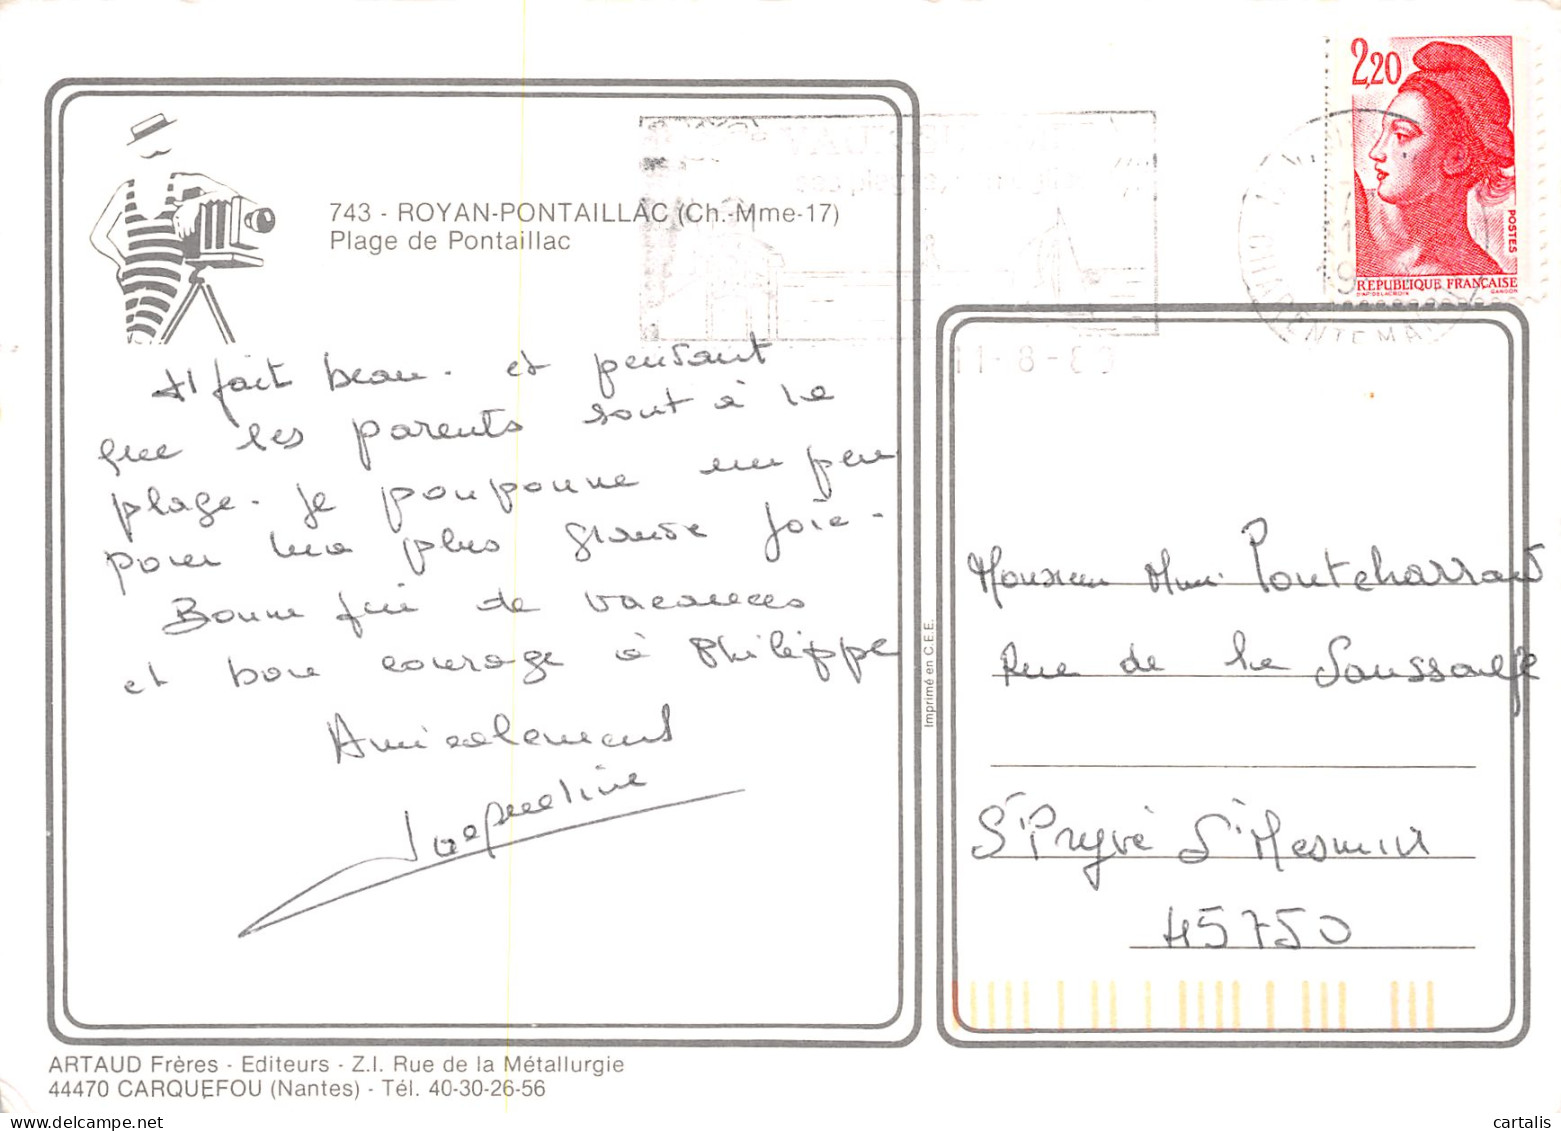 2,20
POSTES
REPUBLIQUE FRANÇAISE
D'AP. DELACROIX GANDON
743 - ROYAN-PONTAILLAC (Ch.-Mme-17)
Plage de Pontaillac
CHARENTE MAR
11-8-8
Il fait beau. et pendant
que les parents sont à la
plage. je pouponne un peu
pour ma plus grande joie.
Bonne fin de vacances
et bon courage à Philippe
Amicalement
Jacqueline
Imprimé en C.E.E.
Monsieur Mme Pontcharraud
Rue de la Saussaye
St Pryvé St Mesmin
45750
ARTAUD Frères - Editeurs - Z.I. Rue de la Métallurgie
44470 CARQUEFOU (Nantes) - Tél. 40-30-26-56
cartalis